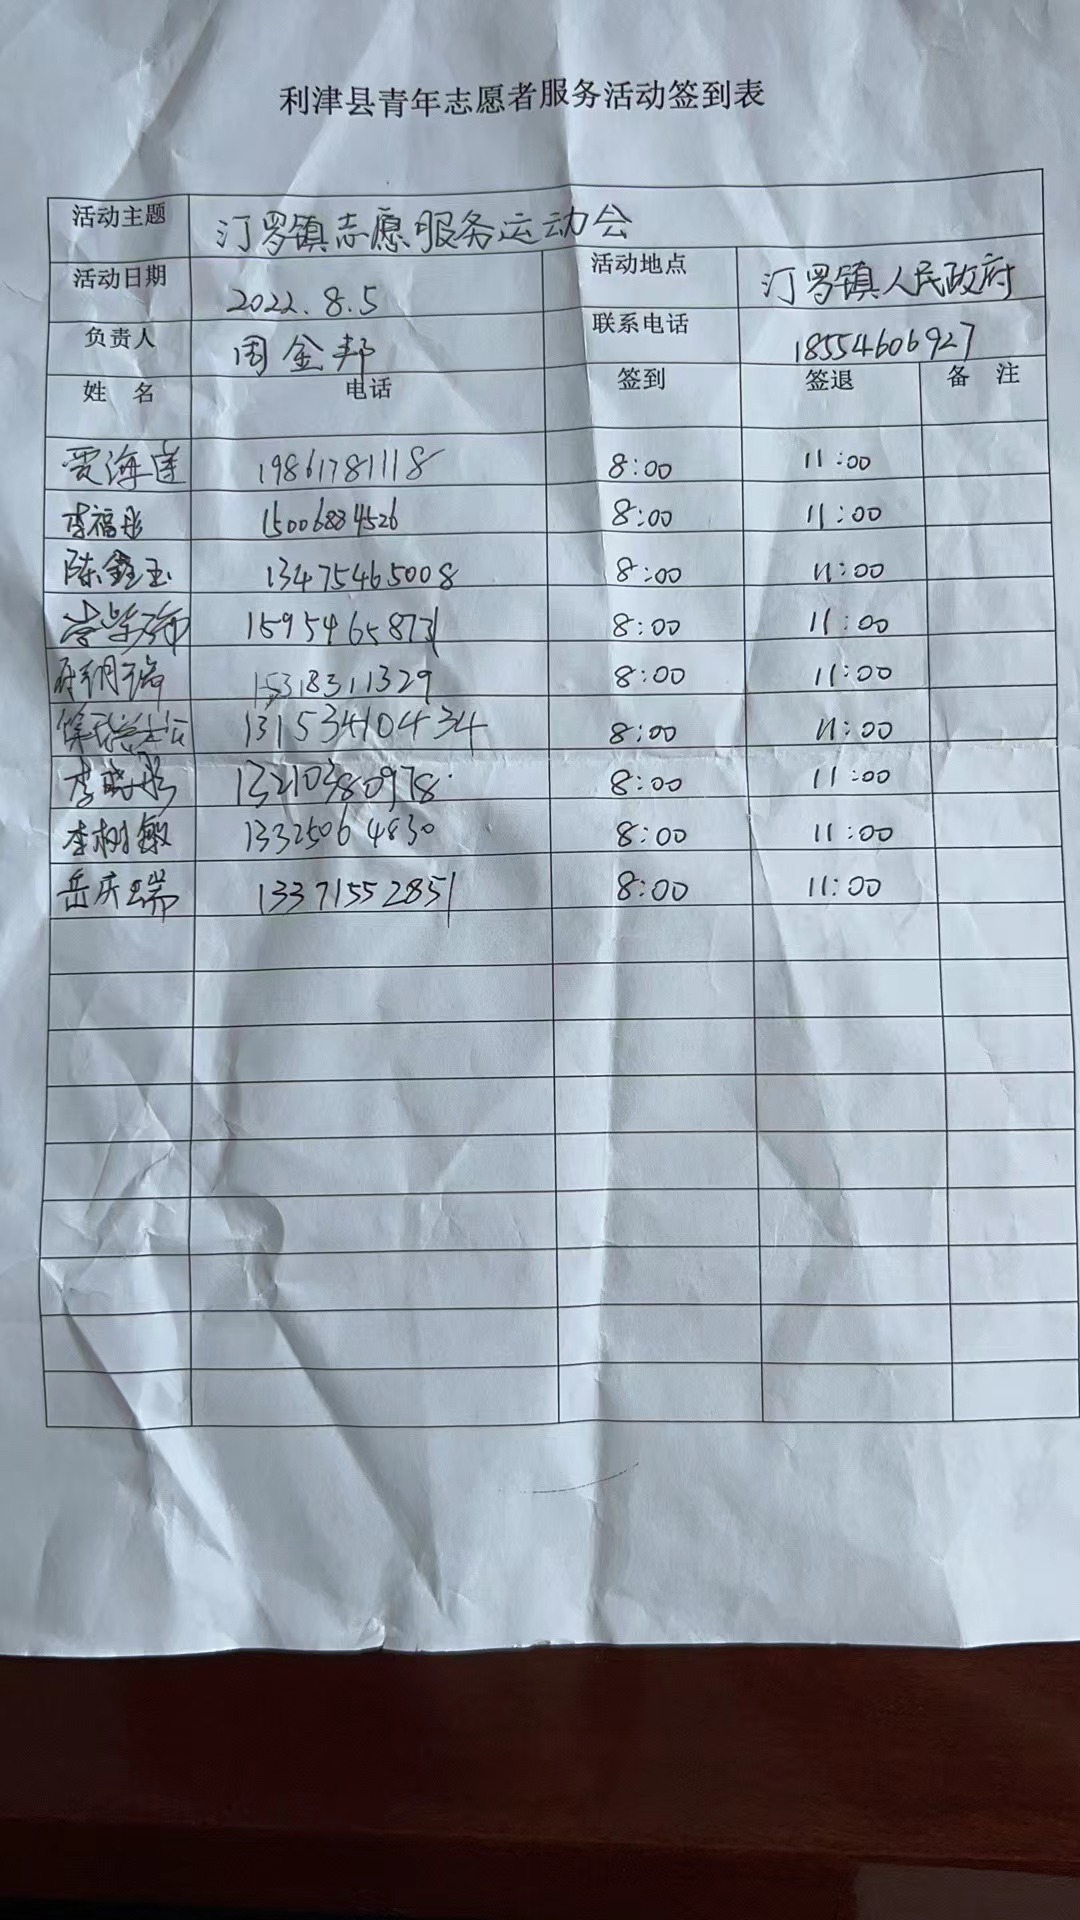 利津县青年志愿者服务活动签到表
活动主题 汀罗镇志愿服务运动会
活动日期 2022.8.5 活动地点 汀罗镇人民政府
负责人 周金邦 联系电话 18554606927
姓 名 电话 签到 签退 备 注
贾海莲 19861781118 8:00 11:00
李福彤 15006884526 8:00 11:00
陈鑫玉 13475465008 8:00 11:00
15954658731 8:00 11:00
15318311329 8:00 11:00
13153410434 8:00 11:00
李晓彤 13210380978 8:00 11:00
李树敏 13325064830 8:00 11:00
岳庆瑞 13371552851 8:00 11:00